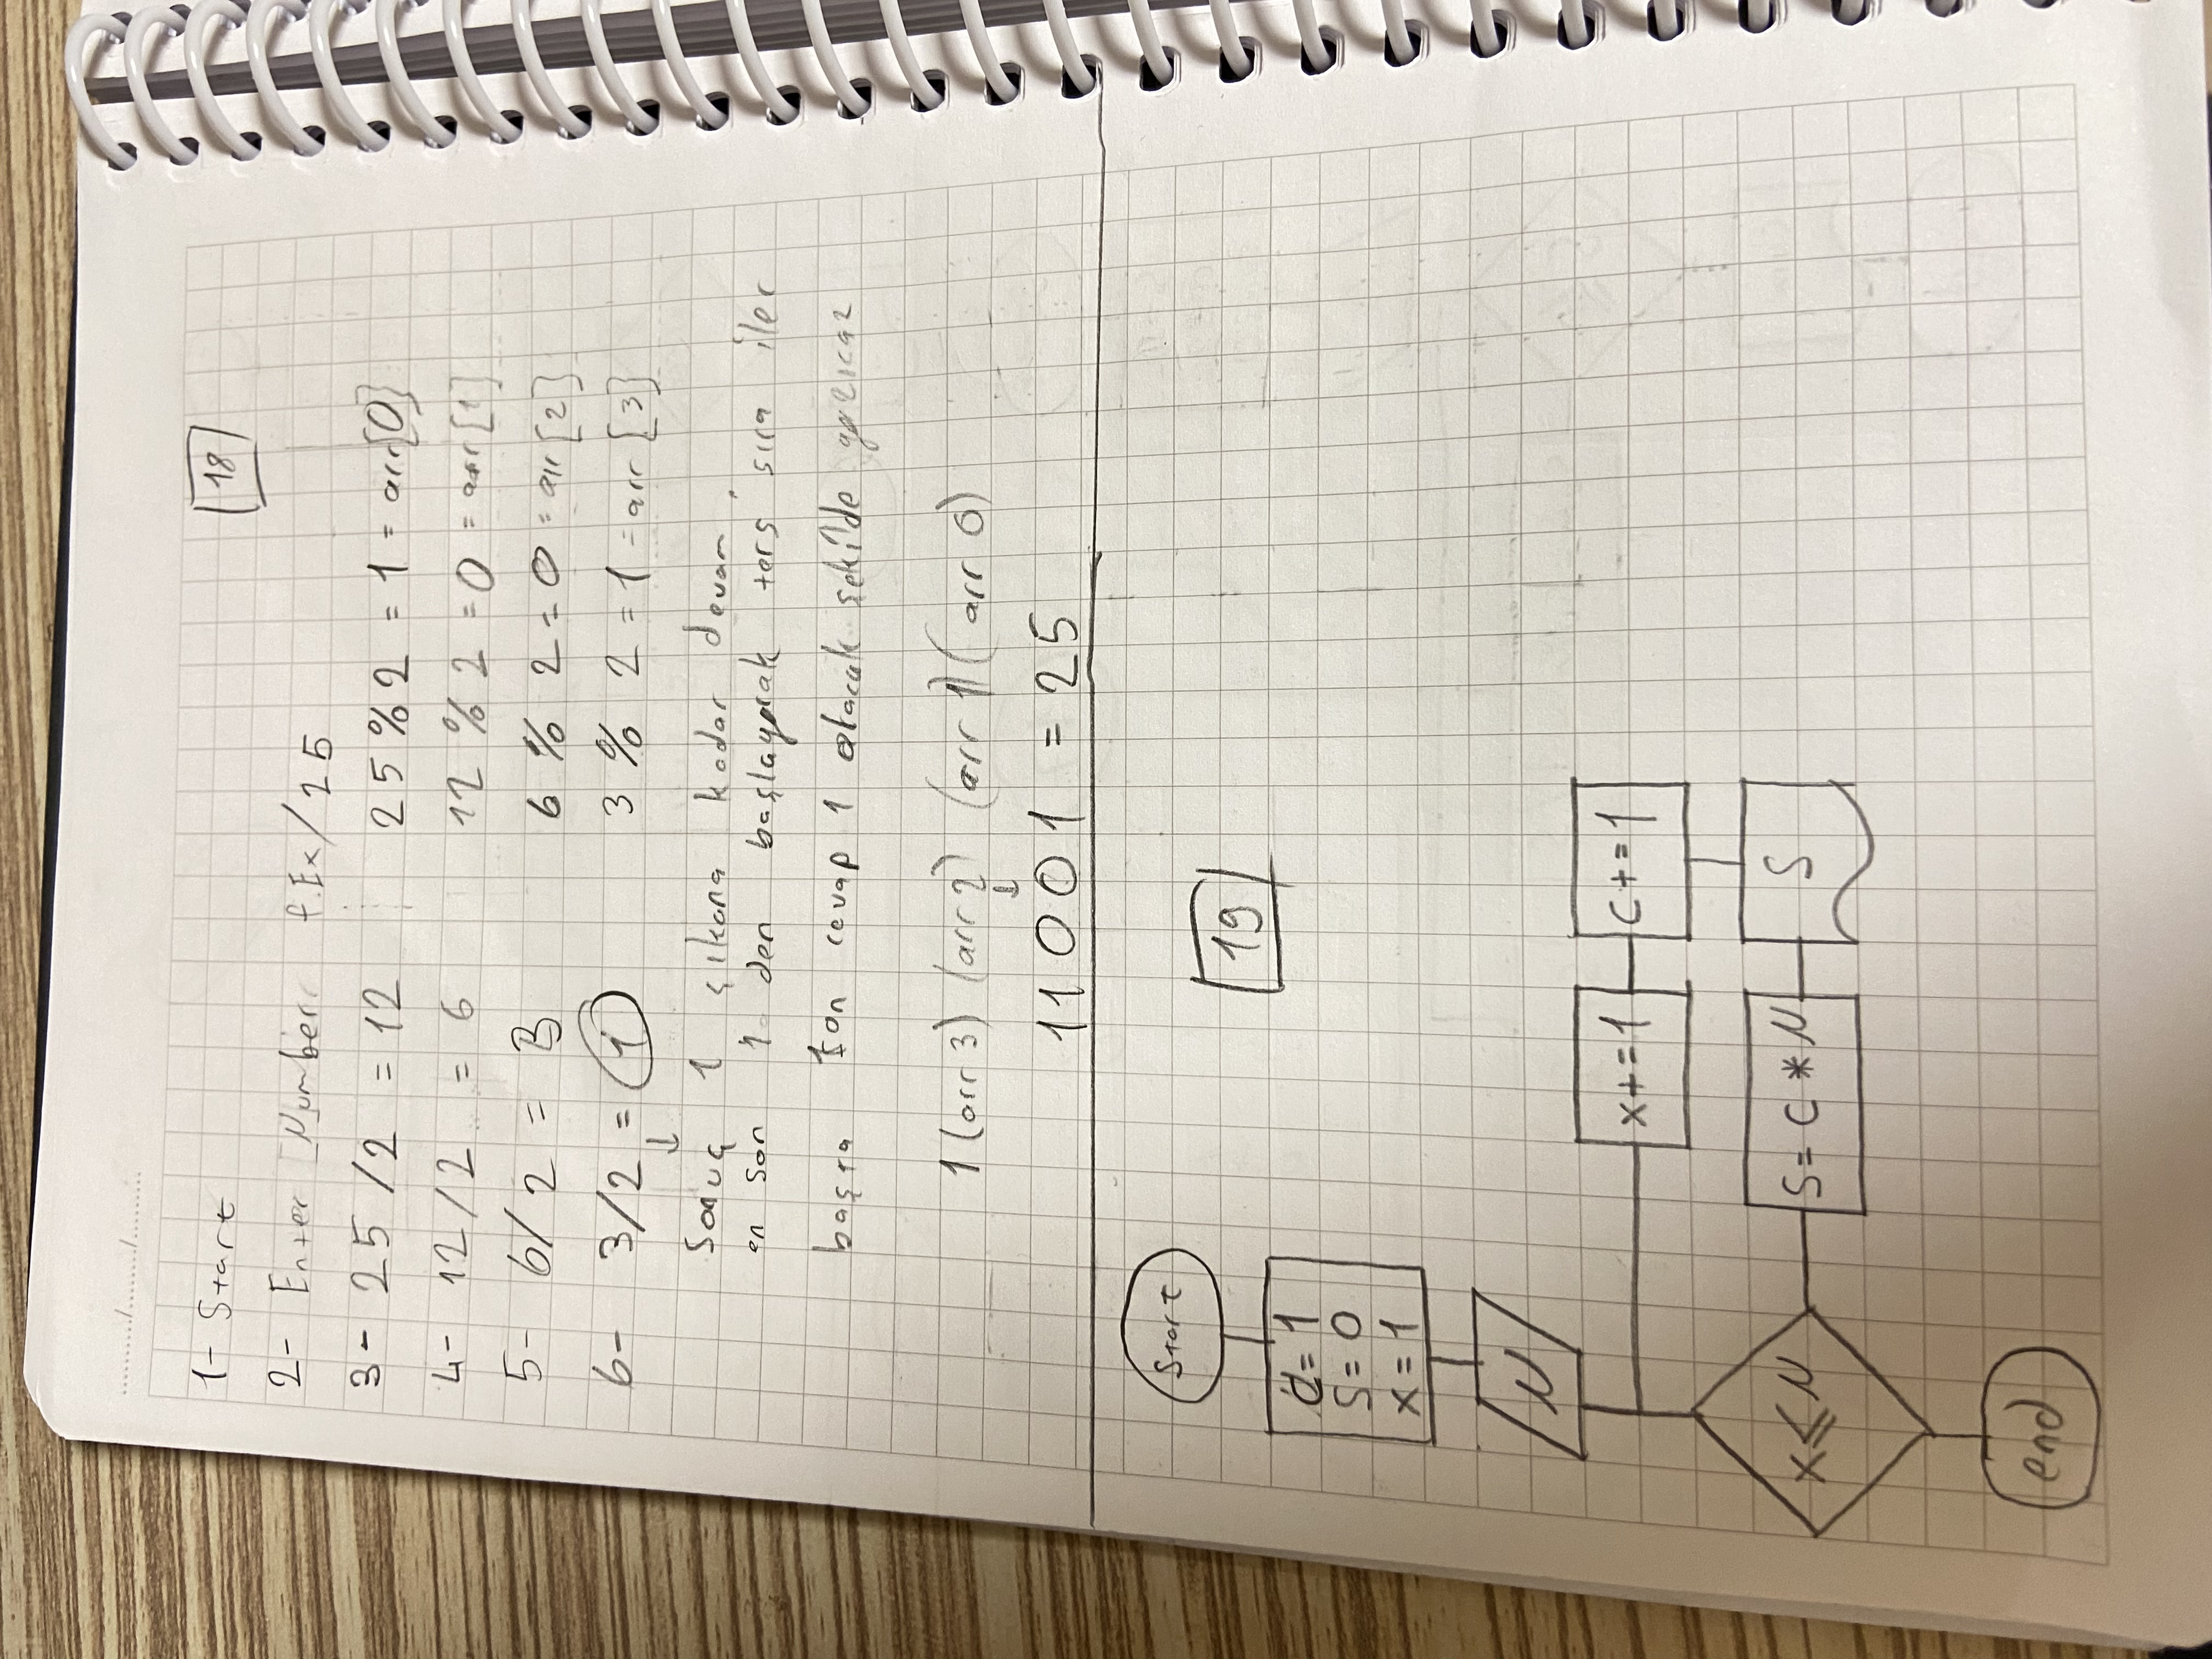 ........../......../........
1- Start
18
2- Enter Number f.Ex/ 25
3- 25 /2 = 12 25 % 2 = 1 = arr[0]
4- 12/2 = 6 12 % 2 = 0 = arr [1]
5- 6/2 = 3 6 % 2 = 0 = arr [2]
6- 3/2 = 1 3 % 2 = 1 = arr [3]
↓
Sonuç 1 çıkana kadar devam.
en son 1 den başlayarak ters sıra iler
başta son cevap 1 olacak şekilde yazıcaz
1 (arr 3) (arr 2) (arr 1) (arr 0)
↓
11001 = 25
Start
19
C= 1
S= 0
x = 1
N
x+=1 C+=1
x≤N S= C * N S
end